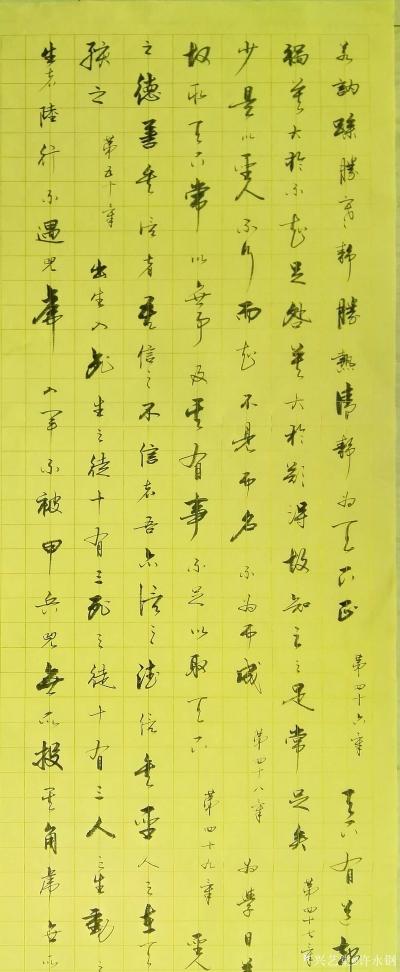 若訥躁勝寒靜勝熱清靜為天下正 第四十六章 天下有道卻
禍莫大於不知足咎莫大於欲得故知足之足常足矣 第四十七章
少是以聖人不行而知不見而名不為而成 第四十八章 為學日益
故取天下常以無事及其有事不足以取天下 第四十九章 聖
之德善矣信者吾信之不信者吾亦信之德信矣聖人之在天
孩之 第五十章 出生入死生之徒十有三死之徒十有三人之生動之
生者陸行不遇兕虎入軍不被甲兵兕無所投其角虎無所